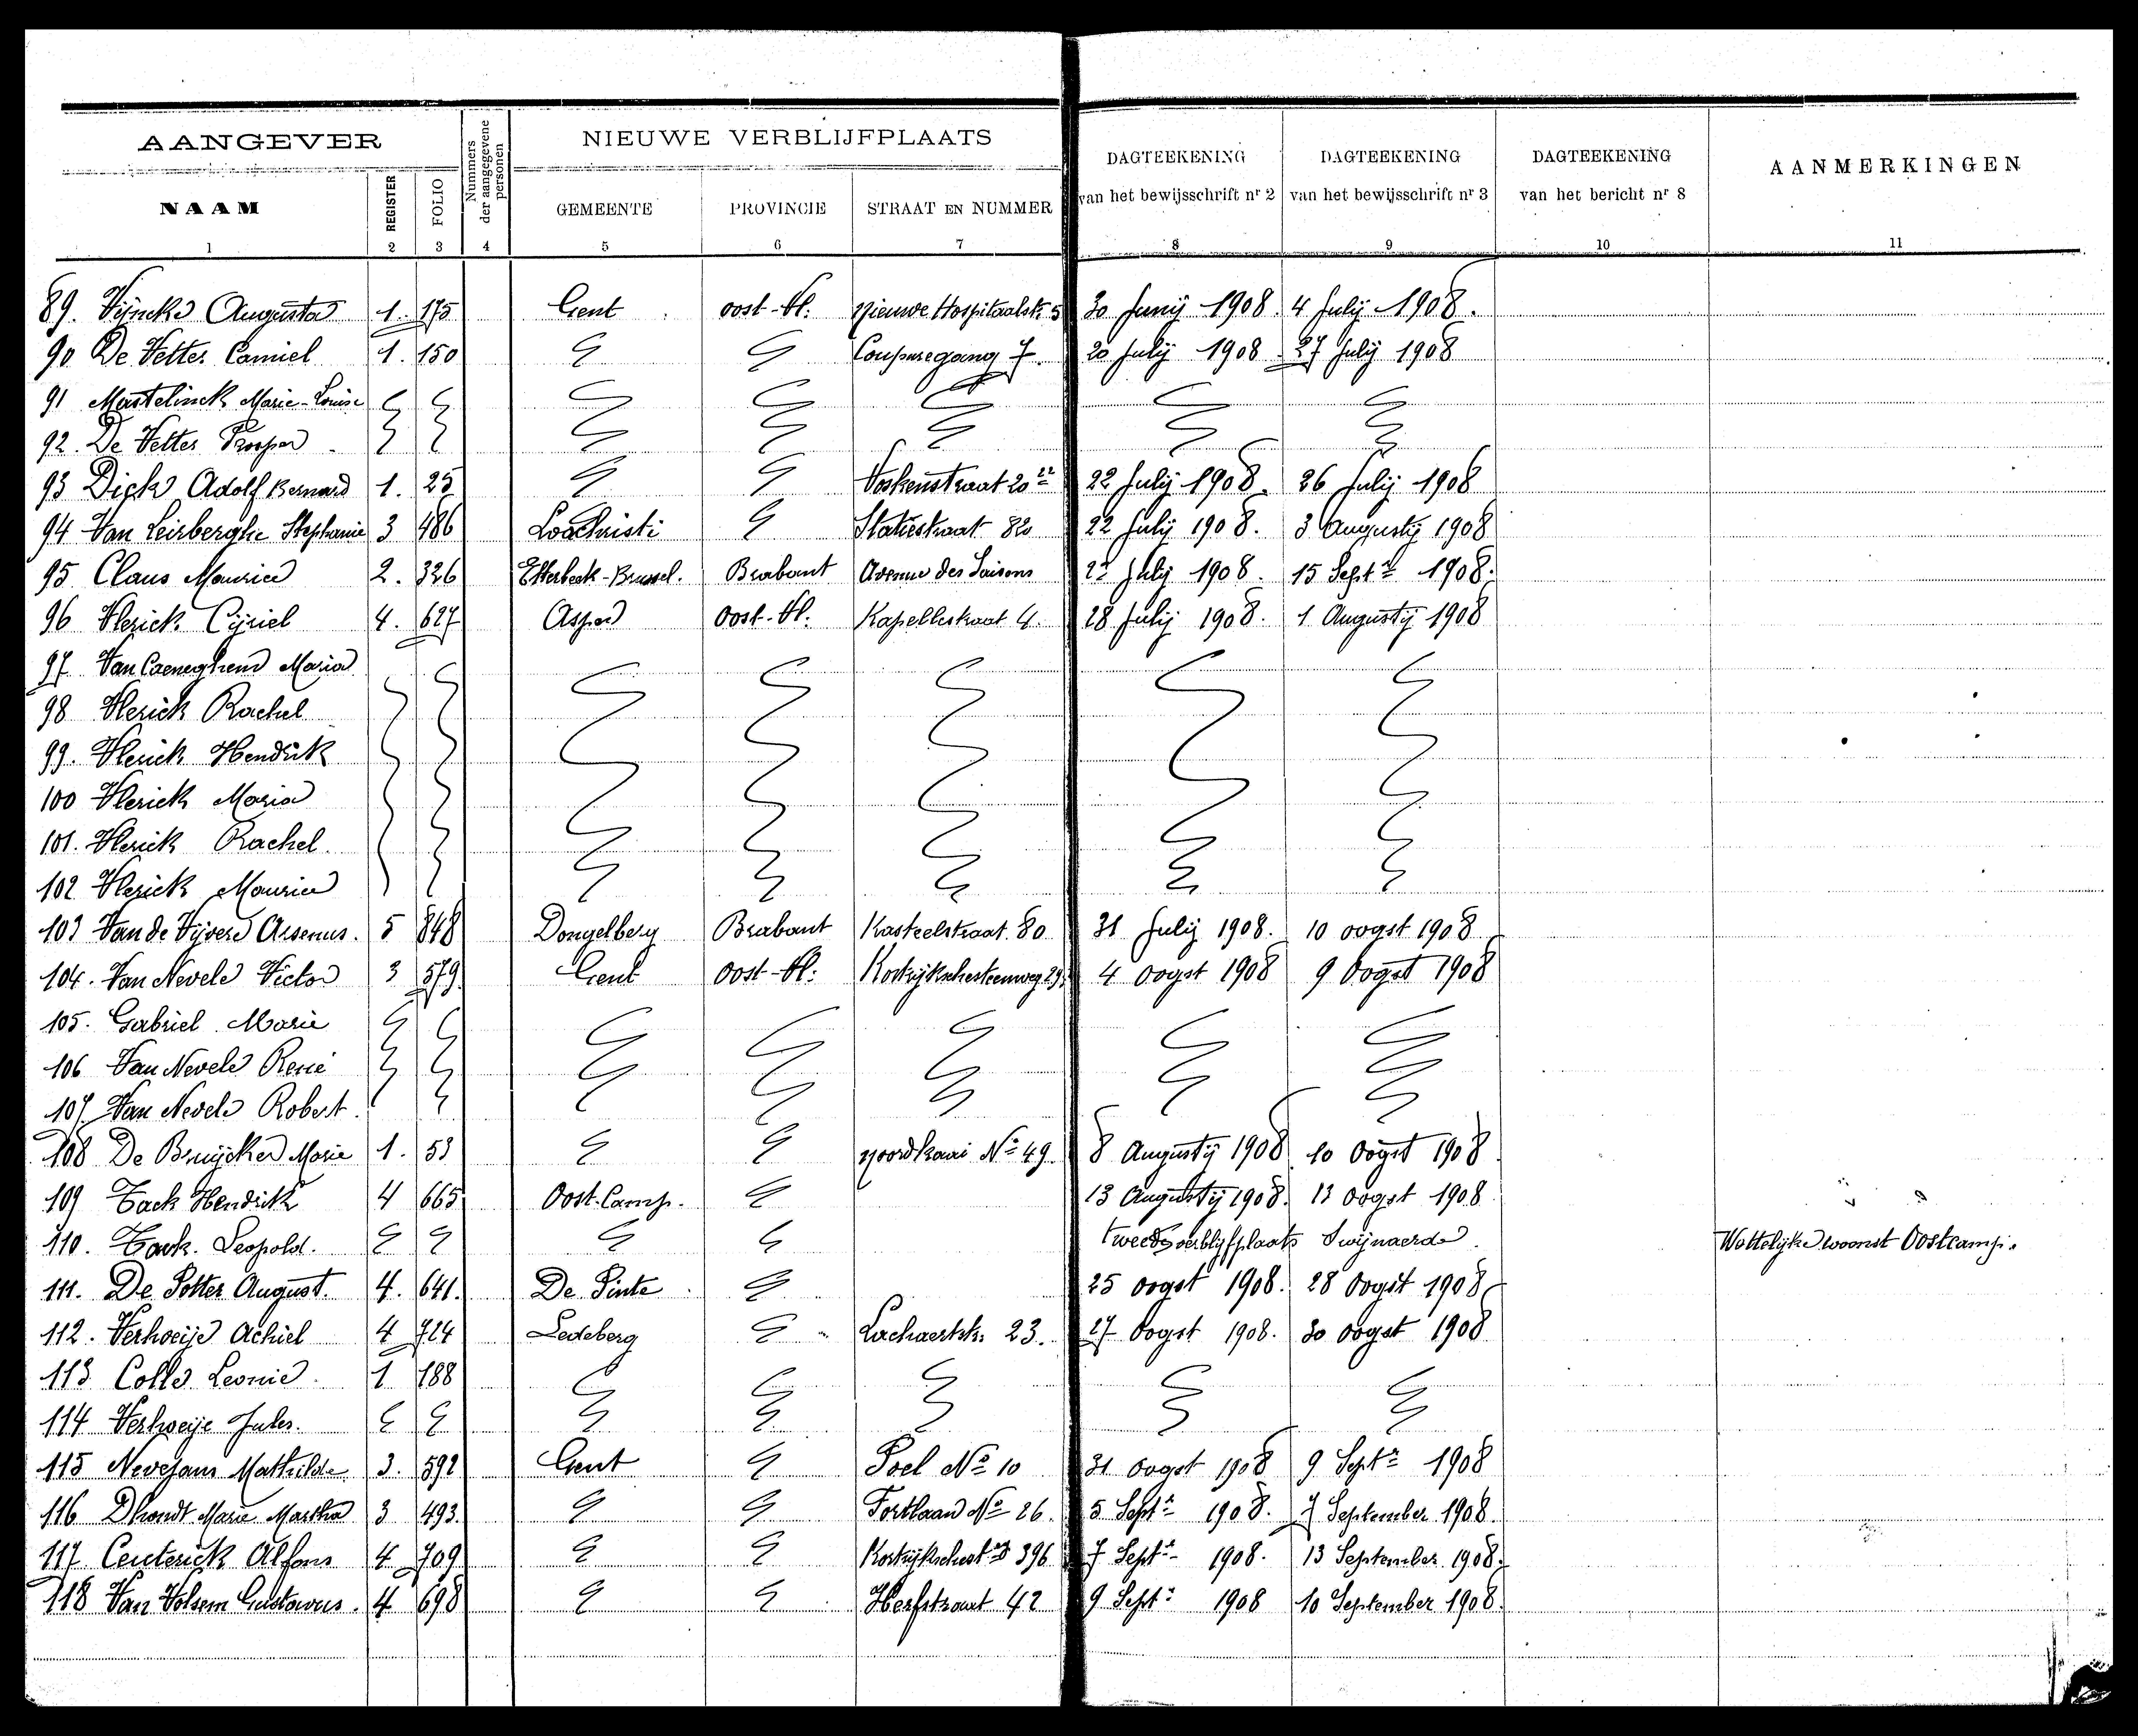 AANGEVER
NIEUWE VERBLIJFPLAATS
NAAM
REGISTER
FOLIO
Nummers der aangegevene personen
GEMEENTE
PROVINCIE
STRAAT EN NUMMER
DAGTEEKENING van het bewijsschrift nr 2
DAGTEEKENING van het bewijsschrift nr 3
DAGTEEKENING van het bericht nr 8
AANMERKINGEN
1 2 3 4 5 6 7 8 9 10 11
89. Vijncke Augusta 1. 175 Gent oost-Vl. Nieuwe Hospitaalstr. 5 30 Junij 1908 4 Julij 1908.
90 De Vetter Camiel 1. 150 Coupuregang 7. 20 July 1908 27 July 1908
91 Mastelinck Marie-Louise
92. De Vetter Prosper
93 Dick Adolf Bernard 1. 25 Voskenstraat 20 22 July 1908. 26 July 1908
94 Van Leirberghe Stephanie 3 486 Loochristi Statiestraat 82 22 July 1908. 3 Augusty 1908
95 Claus Maurice 2. 326 Etterbeek-Brussel. Brabant Avenue des Saisons July 1908. 15 Septr 1908.
96 Vlerick Cijriel 4. 627 Asper oost-Vl. Kapellestraat 4. 28 July 1908. 1 Augustij 1908
97 Van Caeneghem Maria
98 Vlerick Rachel
99. Vlerick Hendrik
100 Vlerick Maria
101. Vlerick Rachel.
102 Vlerick Maurice
103 Van de Vijvere Arsenus. 5 848 Dongelberg Brabant Kasteelstraat 80 31 July 1908. 10 oogst 1908
104. Van Nevele Victor 3 579 Gent oost-Vl. Kortrijkschesteenweg 29. 4 oogst 1908 9 Oogst 1908
105. Gabriel Marie
106 Van Nevele René
107 Van Nevele Robert.
108 De Bruijcker Marie 1. 53 Noordkaai No 49. 8 Augustij 1908 10 Oogst 1908
109 Tack Hendrik 4 665 Oost-Camp. 13 Augustij 1908. 13 oogst 1908
110. Tack. Leopold. tweede verblijfplaats Swijnaerde Wettelijke woonst Oostcamp.
111. De Potter August. 4. 641. De Pinte 25 oogst 1908. 28 Oogst 1908
112. Verhoeije Achiel 4 724 Ledeberg Lachaertstr. 23. 27 Oogst 1908. 30 oogst 1908
113 Colle Leonie 1 188
114 Verhoeije Jules.
115 Nevejans Mathilde 3. 592 Gent Poel No 10 31 oogst 1908 9 Septr 1908
116 Dhondt Marie Martha 3 493. Fortlaan No 26. 5 Septr 1908. 7 September 1908.
117 Centerick Alfons 4 709 396 7 Septr 1908. 13 September 1908.
118 Van Volsem Gustavus. 4 698 42 9 Septr 1908 10 September 1908.